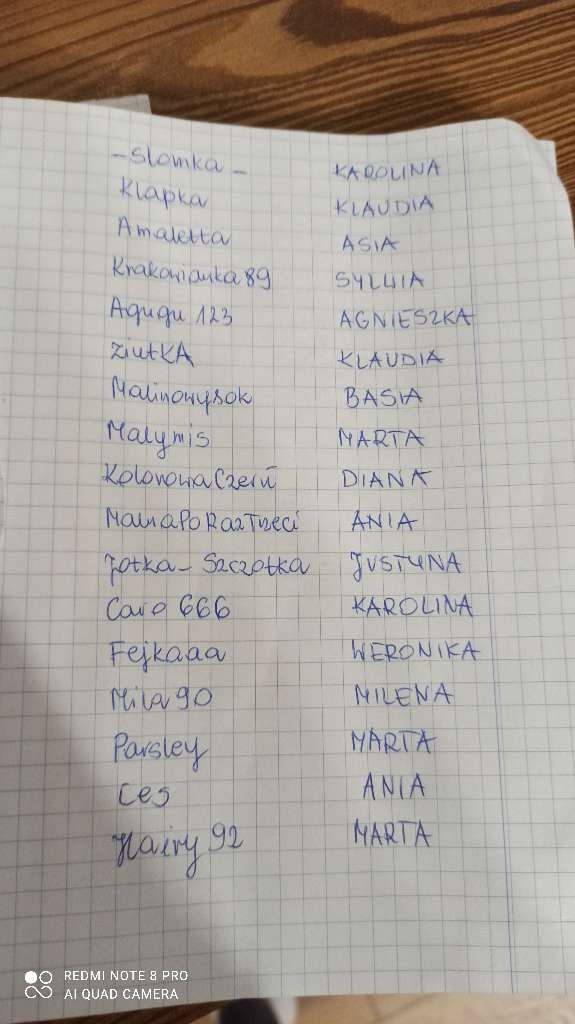 -Slomka- KAROLINA
Klapka KLAUDIA
Amaletta ASIA
Krakowianka89 SYLWIA
Agugu 123 AGNIESZKA
ZiutKA KLAUDIA
Malinowysok BASIA
Malymis MARTA
KolorowaCzerń DIANA
MamaPoRazTrzeci ANIA
Jotka-Szczotka JUSTYNA
Caro 666 KAROLINA
Fejkaaa WERONIKA
Mila90 MILENA
Parsley MARTA
Ces ANIA
Hairy 92 MARTA
REDMI NOTE 8 PRO
AI QUAD CAMERA